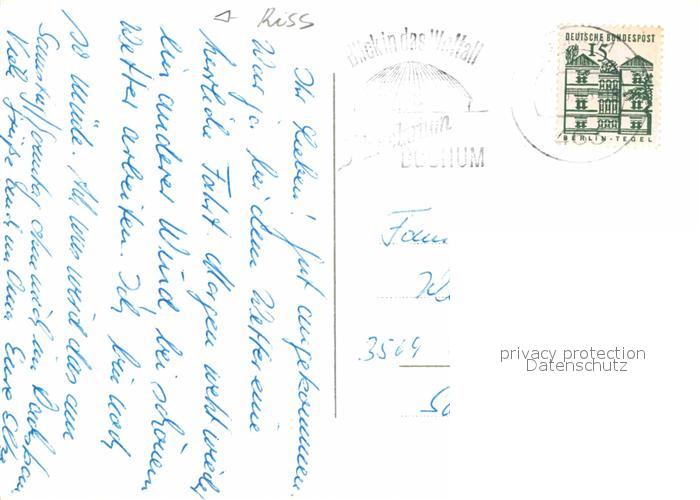 Riss
Ihr Lieben! Gut angekommen.
War ja bei dem Wetter eine
herrliche Fahrt. Morgen weht wieder
ein anderer Wind, bei schönem
Wetter arbeiten. Ich bin noch
so müde. Ach was wird das am
ohne mich im
Viele Grüße auch an Oma Eure
Blick in das Weltall
BOCHUM
DEUTSCHE BUNDESPOST
15
BERLIN-TEGEL
Fam
3569
privacy protection
Datenschutz